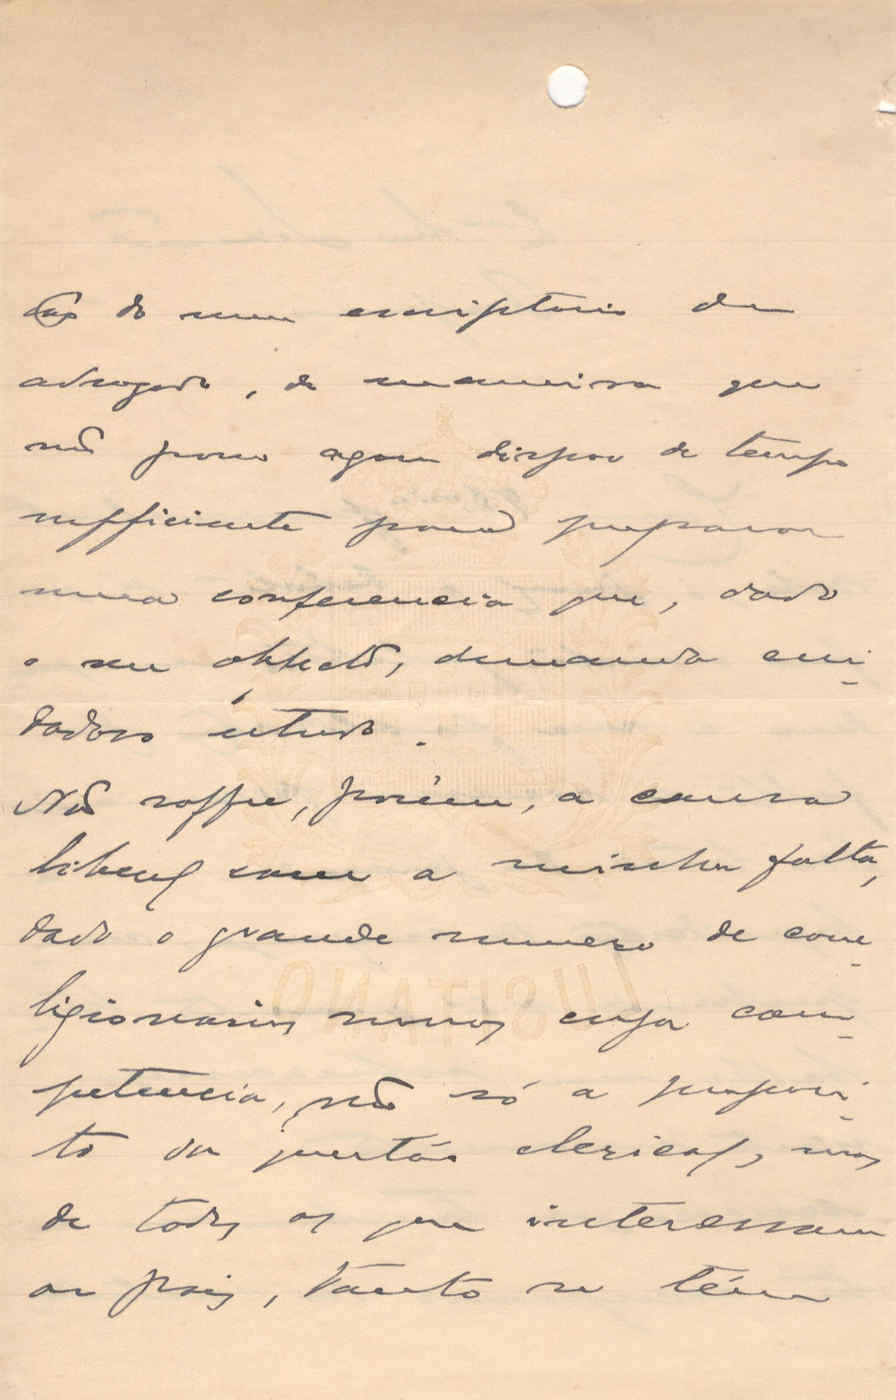 ção do meu escriptorio de
advogado, de maneira que
não posso agora dispor de tempo
sufficiente para preparar
uma conferencia que, dado
o seu objecto, demanda cui-
dadoso estudo.
Não soffre, porém, a causa
liberal com a minha falta,
dado o grande numero de corre-
ligionarios nossos cuja com-
petencia, não só a proposi-
to da questão clerical, mas
de todas as que interessam
ao paiz, tanto se têm
LUSITANO